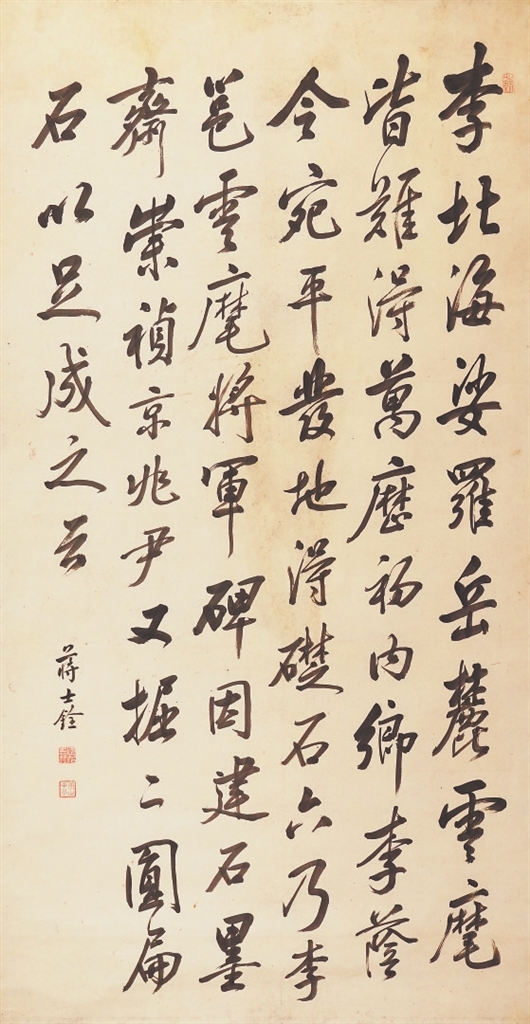 李北海娑羅岳麓雲麾
皆難得萬歷初內鄉李蔭
今宛平發地得礎石六乃李
邕雲麾將軍碑因建石墨
齋崇禎京兆尹又掘二圓扁
石以足成之云
蔣士銓